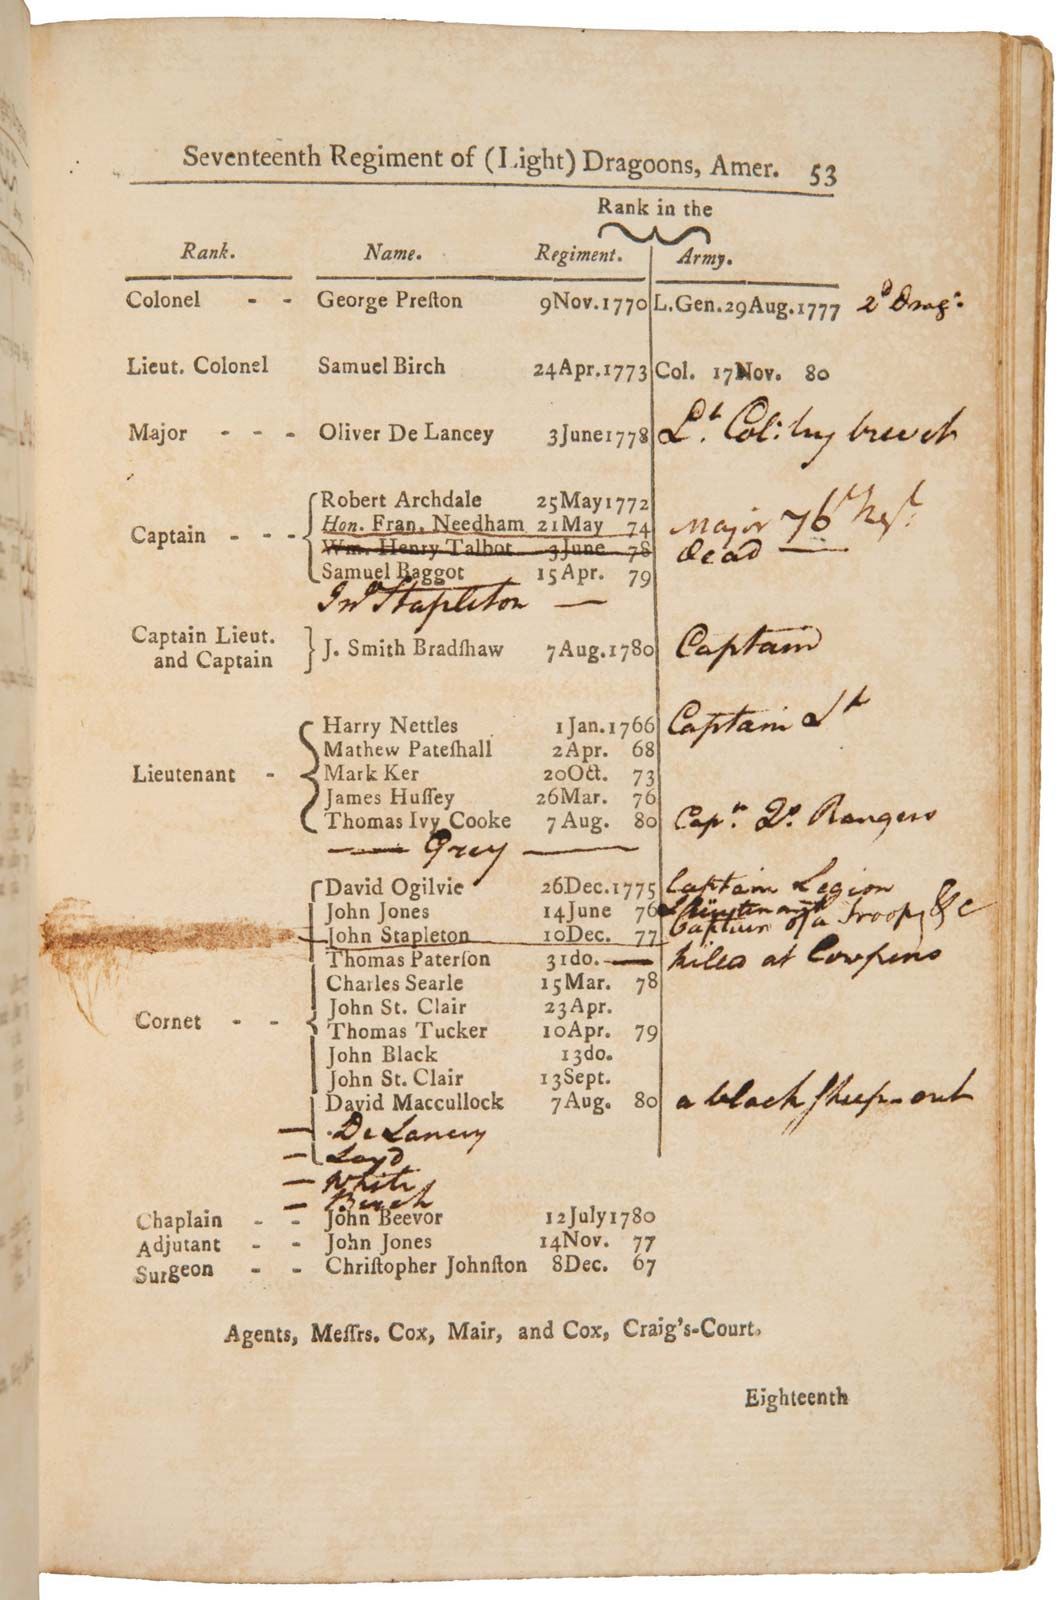 Seventeenth Regiment of (Light) Dragoons, Amer. 53
Rank in the
Rank. Name. Regiment. Army.
Colonel - - George Preſton 9Nov.1770 L.Gen.29Aug.1777 2d Dragns
Lieut. Colonel Samuel Birch 24Apr.1773 Col. 17Nov. 80
Major - - - Oliver De Lancey 3June1778 Lt. Col: by brevet
Robert Archdale 25May1772
Captain - - - Hon. Fran. Needham 21May 74 Major 76th Regt.
Wm. Henry Talbot 3June 78 dead
Samuel Baggot 15Apr. 79
Jno Stapleton —
Captain Lieut. and Captain J. Smith Bradſhaw 7Aug.1780 Captain
Harry Nettles 1Jan.1766 Captain Lt
Mathew Pateſhall 2Apr. 68
Lieutenant - Mark Ker 20Oct. 73
James Huſſey 26Mar. 76
Thomas Ivy Cooke 7Aug. 80 Capn. Qs. Rangers
— Grey —
David Ogilvie 26Dec.1775 Captain Legion
John Jones 14June 76 Lieutenant
John Stapleton 10Dec. 77 Captain of a Troop, &c
Thomas Paterſon 31do. — killed at Cowpens
Charles Searle 15Mar. 78
John St. Clair 23Apr.
Cornet - - Thomas Tucker 10Apr. 79
John Black 13do.
John St. Clair 13Sept.
David Maccullock 7Aug. 80 a black sheep - out
— De Lancey
— Loyd
— White
— Birch
Chaplain - - John Beevor 12July1780
Adjutant - - John Jones 14Nov. 77
Surgeon - - Chriſtopher Johnſton 8Dec. 67
Agents, Meſſrs. Cox, Mair, and Cox, Craig's-Court.
Eighteenth